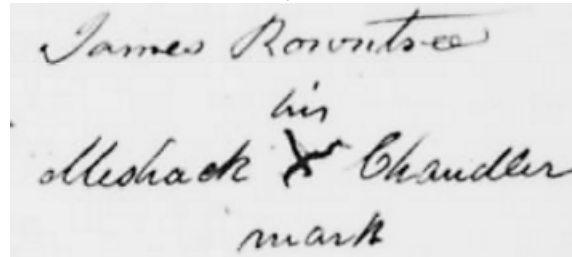 James Rowntree
his
Meshack X Chandler
mark